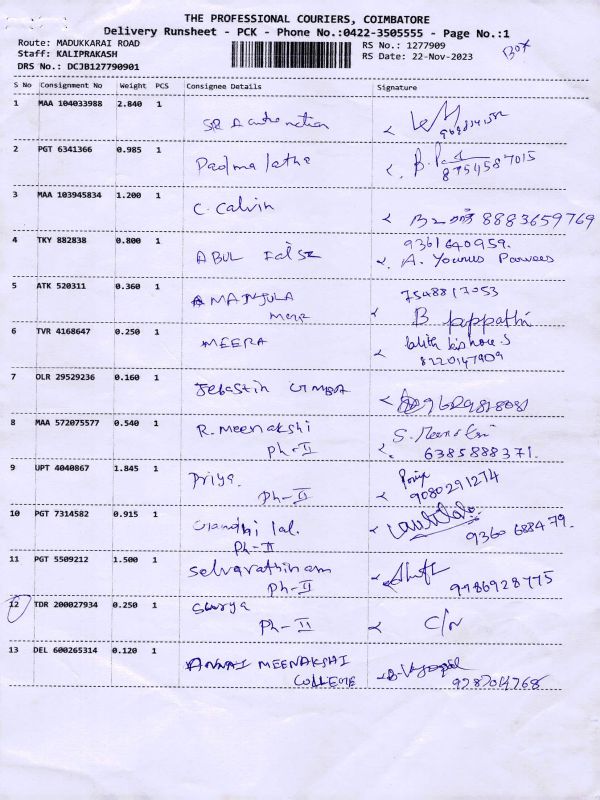 THE PROFESSIONAL COURIERS, COIMBATORE
Delivery Runsheet - PCK - Phone No.:0422-3505555 - Page No.:1
Route: MADUKKARAI ROAD
Staff: KALIPRAKASH
DRS No.: DCJB127790901
RS No.: 1277909
RS Date: 22-Nov-2023
BOX
S No Consignment No Weight PCS Consignee Details Signature
1 MAA 104033988 2.840 1 SR
2 PGT 6341366 0.985 1 Padma latha B. 8754587015
3 MAA 103945834 1.200 1 C. Calvin 8883659769
4 TKY 882838 0.800 1 ABUL Faisz 9361640959. A. Younus Parvees
5 ATK 520311 0.360 1 A MANJULA 7548817053 B pappathi
6 TVR 4168647 0.250 1 MEERA lalith kishore.S 8220147909
7 OLR 29529236 0.160 1 Jebastin
8 MAA 572075577 0.540 1 R. Meenakshi Ph-II S. 6385888371.
9 UPT 4040867 1.845 1 Priya. Ph-II Priya 9080291274
10 PGT 7314582 0.915 1 Gandhi lal. Ph-II 9360 688479.
11 PGT 5509212 1.500 1 Selvarathinam Ph-II 9986928775
12 TDR 200027934 0.250 1 Surya Ph-II C/N
13 DEL 600265314 0.120 1 ANNAI MEENAKSHI COLLEGE 9787014768